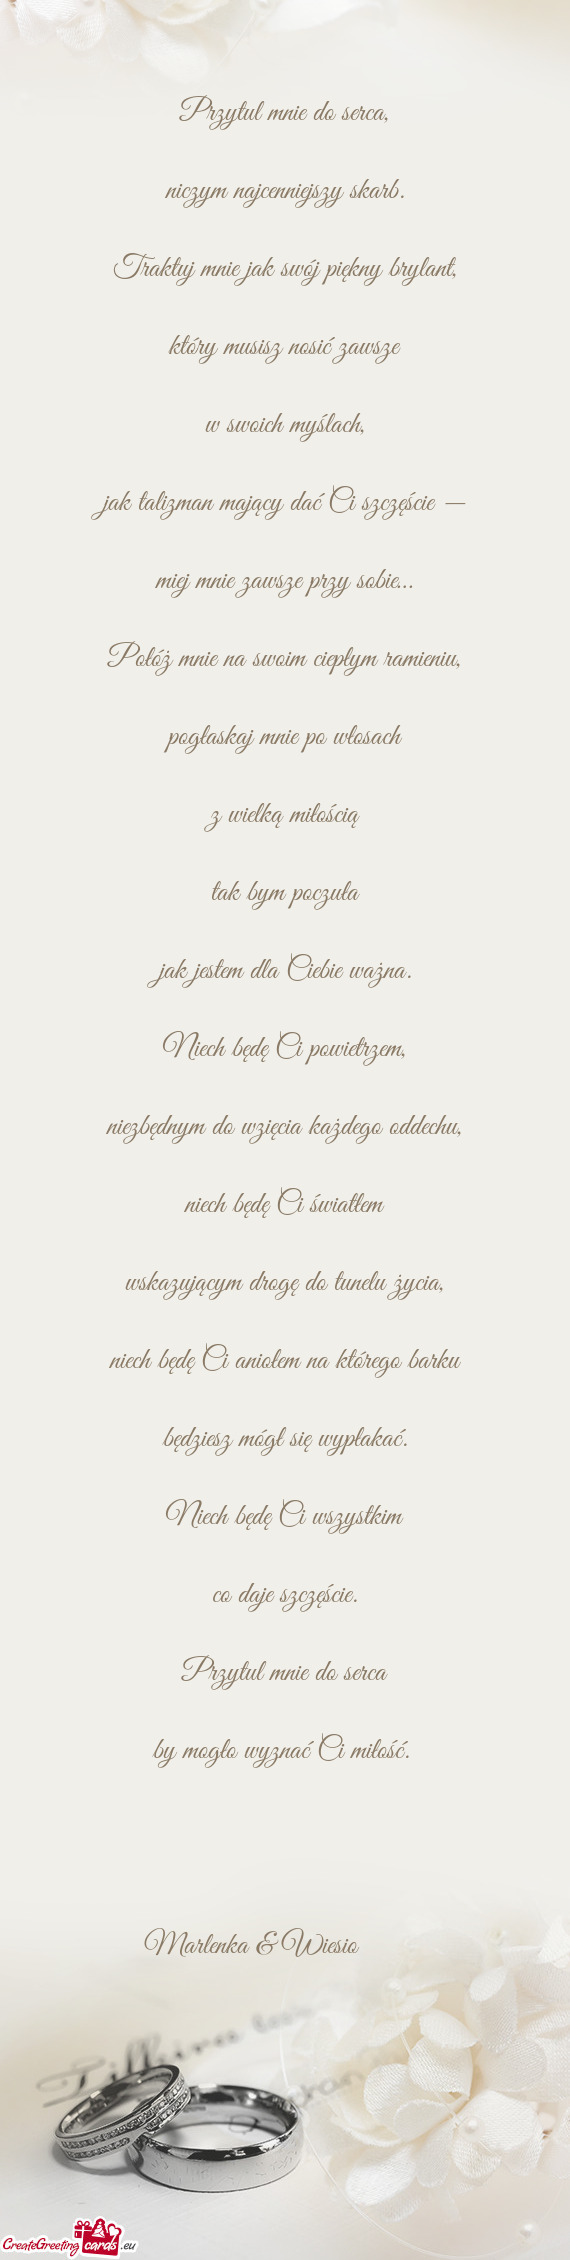 Przytul mnie do serca,
niczym najcenniejszy skarb.
Traktuj mnie jak swój piękny brylant,
który musisz nosić zawsze
w swoich myślach,
jak talizman mający dać Ci szczęście —
miej mnie zawsze przy sobie...
Połóż mnie na swoim ciepłym ramieniu,
pogłaskaj mnie po włosach
z wielką miłością
tak bym poczuła
jak jestem dla Ciebie ważna.
Niech będę Ci powietrzem,
niezbędnym do wzięcia każdego oddechu,
niech będę Ci światłem
wskazującym drogę do tunelu życia,
niech będę Ci aniołem na którego barku
będziesz mógł się wypłakać.
Niech będę Ci wszystkim
co daje szczęście.
Przytul mnie do serca
by mogło wyznać Ci miłość.
Marlenka & Wiesio
CreateGreeting cards .eu